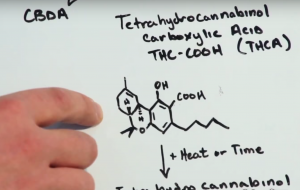 CBDA
Tetrahydrocannabinol
carboxylic Acid
THC-COOH (THCA)
OH
COOH
H
H
O
+ Heat or Time
Tetrahydrocannabinol